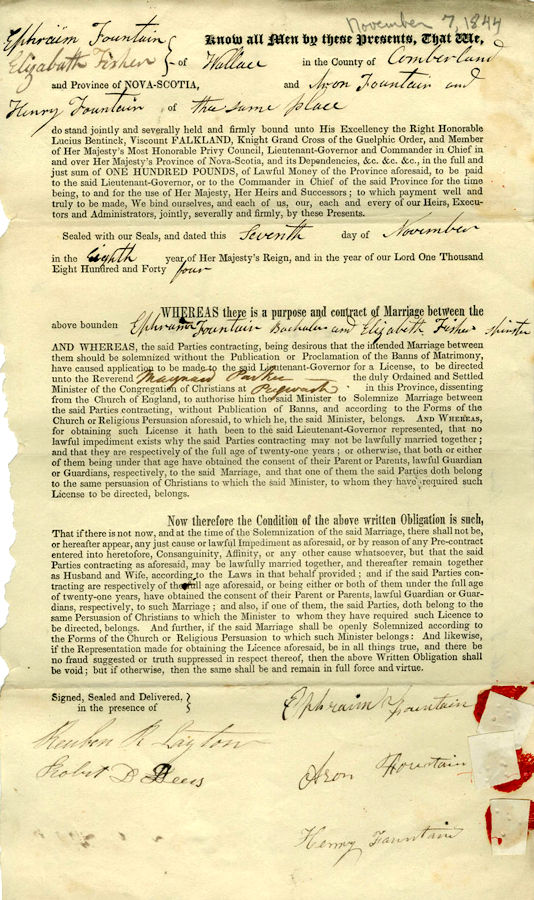 November 7, 1844
Ephraim Fountain } Know all Men by these Presents, That We,
Elizabeth Fisher } of Wallace in the County of Comberland
and Province of NOVA-SCOTIA, and Aron Fountain and
Henry Fountain of the same place
do stand jointly and severally held and firmly bound unto His Excellency the Right Honorable
Lucius Bentinck, Viscount FALKLAND, Knight Grand Cross of the Guelphic Order, and Member
of Her Majesty's Most Honorable Privy Council, Lieutenant-Governor and Commander in Chief in
and over Her Majesty's Province of Nova-Scotia, and its Dependencies, &c. &c. &c., in the full and
just sum of ONE HUNDRED POUNDS, of Lawful Money of the Province aforesaid, to be paid
to the said Lieutenant-Governor, or to the Commander in Chief of the said Province for the time
being, to and for the use of Her Majesty, Her Heirs and Successors; to which payment well and
truly to be made, We bind ourselves, and each of us, our, each and every of our Heirs, Execu-
tors and Administrators, jointly, severally and firmly, by these Presents.
Sealed with our Seals, and dated this Seventh day of November
in the Eighth year of Her Majesty's Reign, and in the year of our Lord One Thousand
Eight Hundred and Forty four
WHEREAS there is a purpose and contract of Marriage between the
above bounden Ephraim Fountain Bachelor and Elizabeth Fisher Spinster
AND WHEREAS, the said Parties contracting, being desirous that the intended Marriage between
them should be solemnized without the Publication or Proclamation of the Banns of Matrimony,
have caused application to be made to the said Lieutenant-Governor for a License, to be directed
unto the Reverend Maynard Parker the duly Ordained and Settled
Minister of the Congregation of Christians at Pugwash in this Province, dissenting
from the Church of England, to authorise him the said Minister to Solemnize Marriage between
the said Parties contracting, without Publication of Banns, and according to the Forms of the
Church or Religious Persuasion aforesaid, to which he, the said Minister, belongs. AND WHEREAS,
for obtaining such License it hath been to the said Lieutenant-Governor represented, that no
lawful impediment exists why the said Parties contracting may not be lawfully married together;
and that they are respectively of the full age of twenty-one years; or otherwise, that both or either
of them being under that age have obtained the consent of their Parent or Parents, lawful Guardian
or Guardians, respectively, to the said Marriage, and that one of them the said Parties doth belong
to the same persuasion of Christians to which the said Minister, to whom they have required such
License to be directed, belongs.
Now therefore the Condition of the above written Obligation is such,
That if there is not now, and at the time of the Solemnization of the said Marriage, there shall not be,
or hereafter appear, any just cause or lawful Impediment as aforesaid, or by reason of any Pre-contract
entered into heretofore, Consanguinity, Affinity, or any other cause whatsoever, but that the said
Parties contracting as aforesaid, may be lawfully married together, and thereafter remain together
as Husband and Wife, according to the Laws in that behalf provided; and if the said Parties con-
tracting are respectively of the full age aforesaid, or being either or both of them under the full age
of twenty-one years, have obtained the consent of their Parent or Parents, lawful Guardian or Guar-
dians, respectively, to such Marriage; and also, if one of them, the said Parties, doth belong to the
same Persuasion of Christians to which the Minister to whom they have required such Licence to
be directed, belongs. And further, if the said Marriage shall be openly Solemnized according to
the Forms of the Church or Religious Persuasion to which such Minister belongs: And likewise,
if the Representation made for obtaining the Licence aforesaid, be in all things true, and there be
no fraud suggested or truth suppressed in respect thereof, then the above Written Obligation shall
be void; but if otherwise, then the same shall be and remain in full force and virtue.
Signed, Sealed and Delivered, }
in the presence of }
Ephraim Fountain
Reuben R Layton
Aron Fountain
Robert D Dees
Henry Fountain